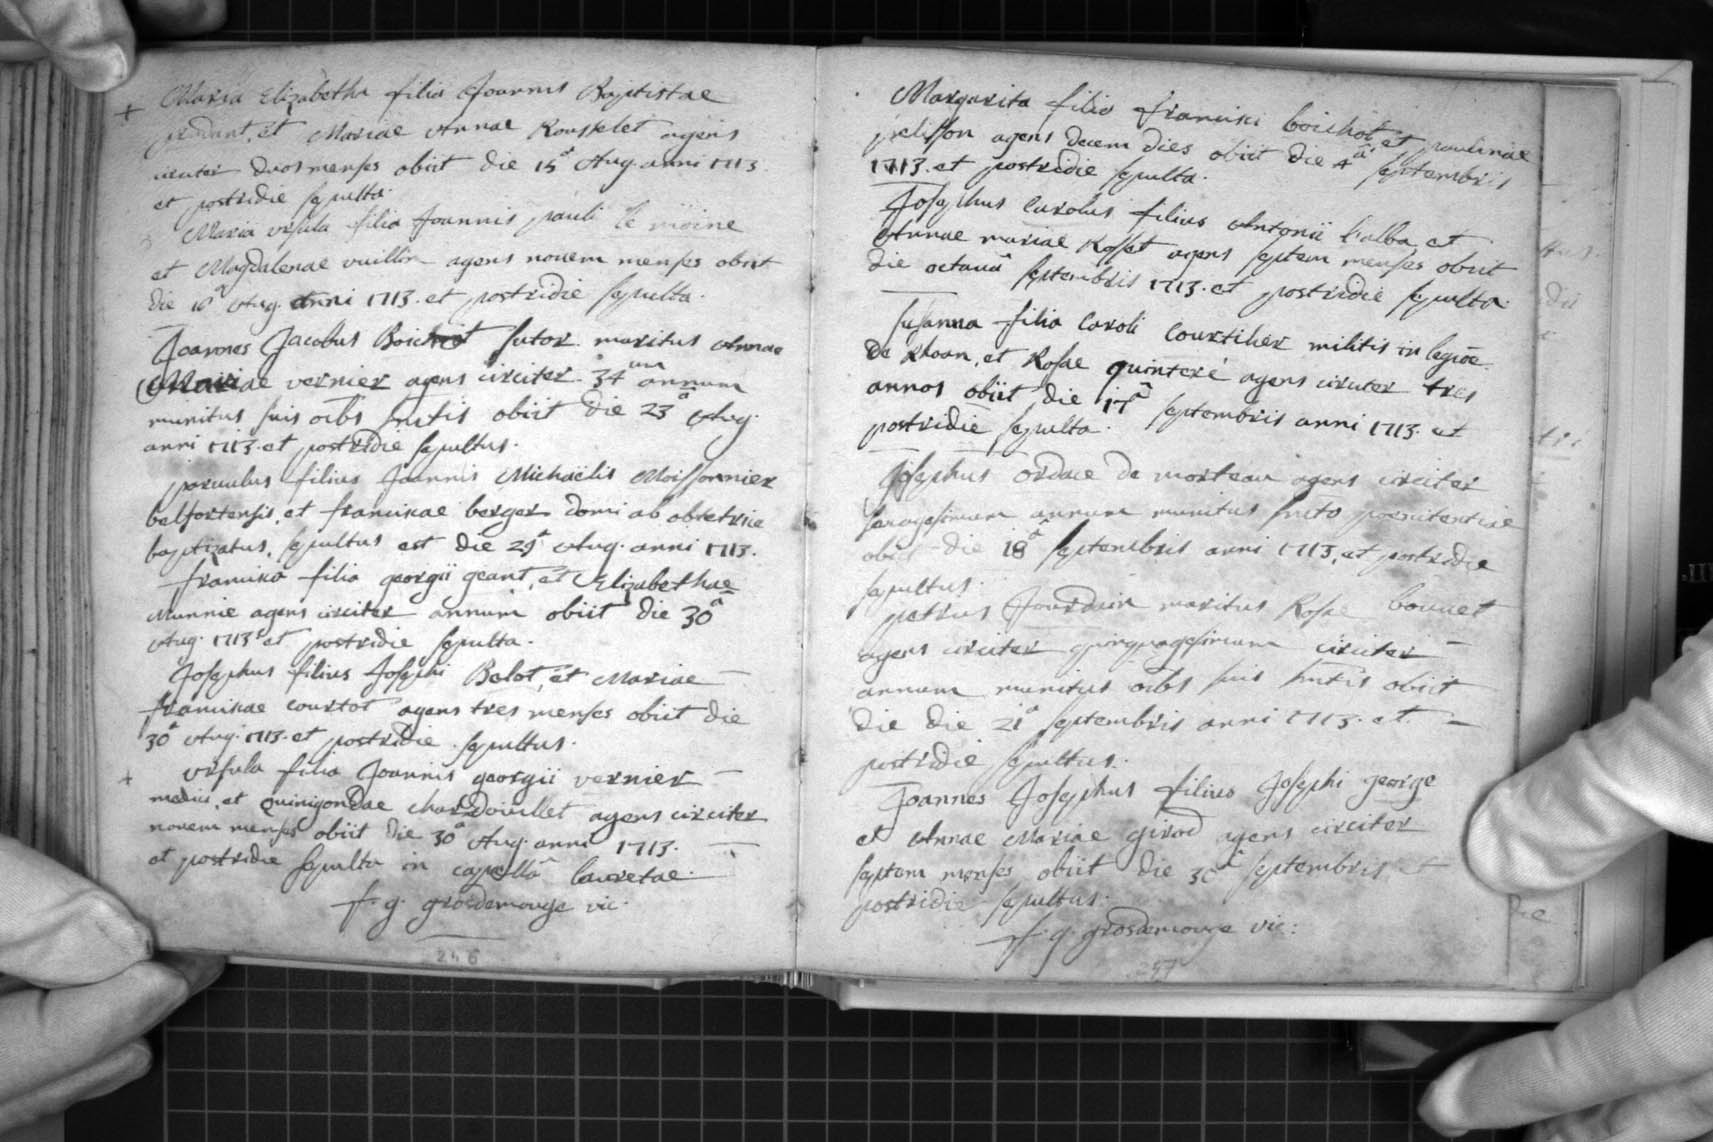 Maria Elizabetha filia Joannis Baptistae
prudent, et Mariae Annae Rousselet agens
circiter duos menses obiit die 15â Aug. anni 1713.
et postridie sepulta.
Maria ursula filia Joannis pauli le moine
et Magdalenae vuillin agens nouem menses obiit
die 16â Aug. anni 1713. et postridie sepulta.
Joannes Jacobus Boichot sutor maritus Annae
Mariae vernier agens circiter 34um annum
munitus suis oibs sntis obiit die 23â Aug.
anni 1713. et postridie sepultus.
paruulus filius Joannis Michaëlis Moissonnier
belfortensis, et franciscae berger domi ab obstetrice
baptizatus, sepultus est die 29â Aug. anni 1713.
francisca filia georgii geant, et Elizabethae
Munnie agens circiter annum obiit die 30â
Aug. 1713 et postridie sepulta.
Josephus filius Josephi Belot, et Mariae
franciscae courtot agens tres menses obiit die
30â Aug. 1713. et postridie sepultus.
ursula filia Joannis georgii vernier
medici, et Quinigondae chardouillet agens circiter
nouem menses obiit die 30â Aug. anni 1713.
et postridie sepulta in capellâ lauretae.
f. g. grosdemouge vic.
246
Margarita filia francisci boichot, et paulinae
pelisson agens decem dies obiit die 4â septembris
1713. et postridie sepulta.
Josephus carolus filius Antonii l'alba et
Annae mariae Rosset agens septem menses obiit
die octauâ septembris 1713. et postridie sepulta.
susanna filia caroli courtilier militis in legioe
de Rhoan, et Rosae quinteré agens circiter tres
annos obiit die 17â septembris anni 1713. et
postridie sepulta.
Josephus ordace de morteau agens circiter
sexagesimum annum munitus snto poenitentiae
obiit die 18â septembris anni 1713, et postridie
sepultus.
petrus Jourdain maritus Rosae bouuet
agens circiter quinquagesimum circiter
annum munitus oibs suis sntis obiit
die die 21â septembris anni 1713. et
postridie sepultus.
Joannes Josephus filius Josephi george
et Annae Mariae girod agens circiter
septem menses obiit die 30â septembris, et
postridie sepultus.
f. g. grosdemouge vic:
247